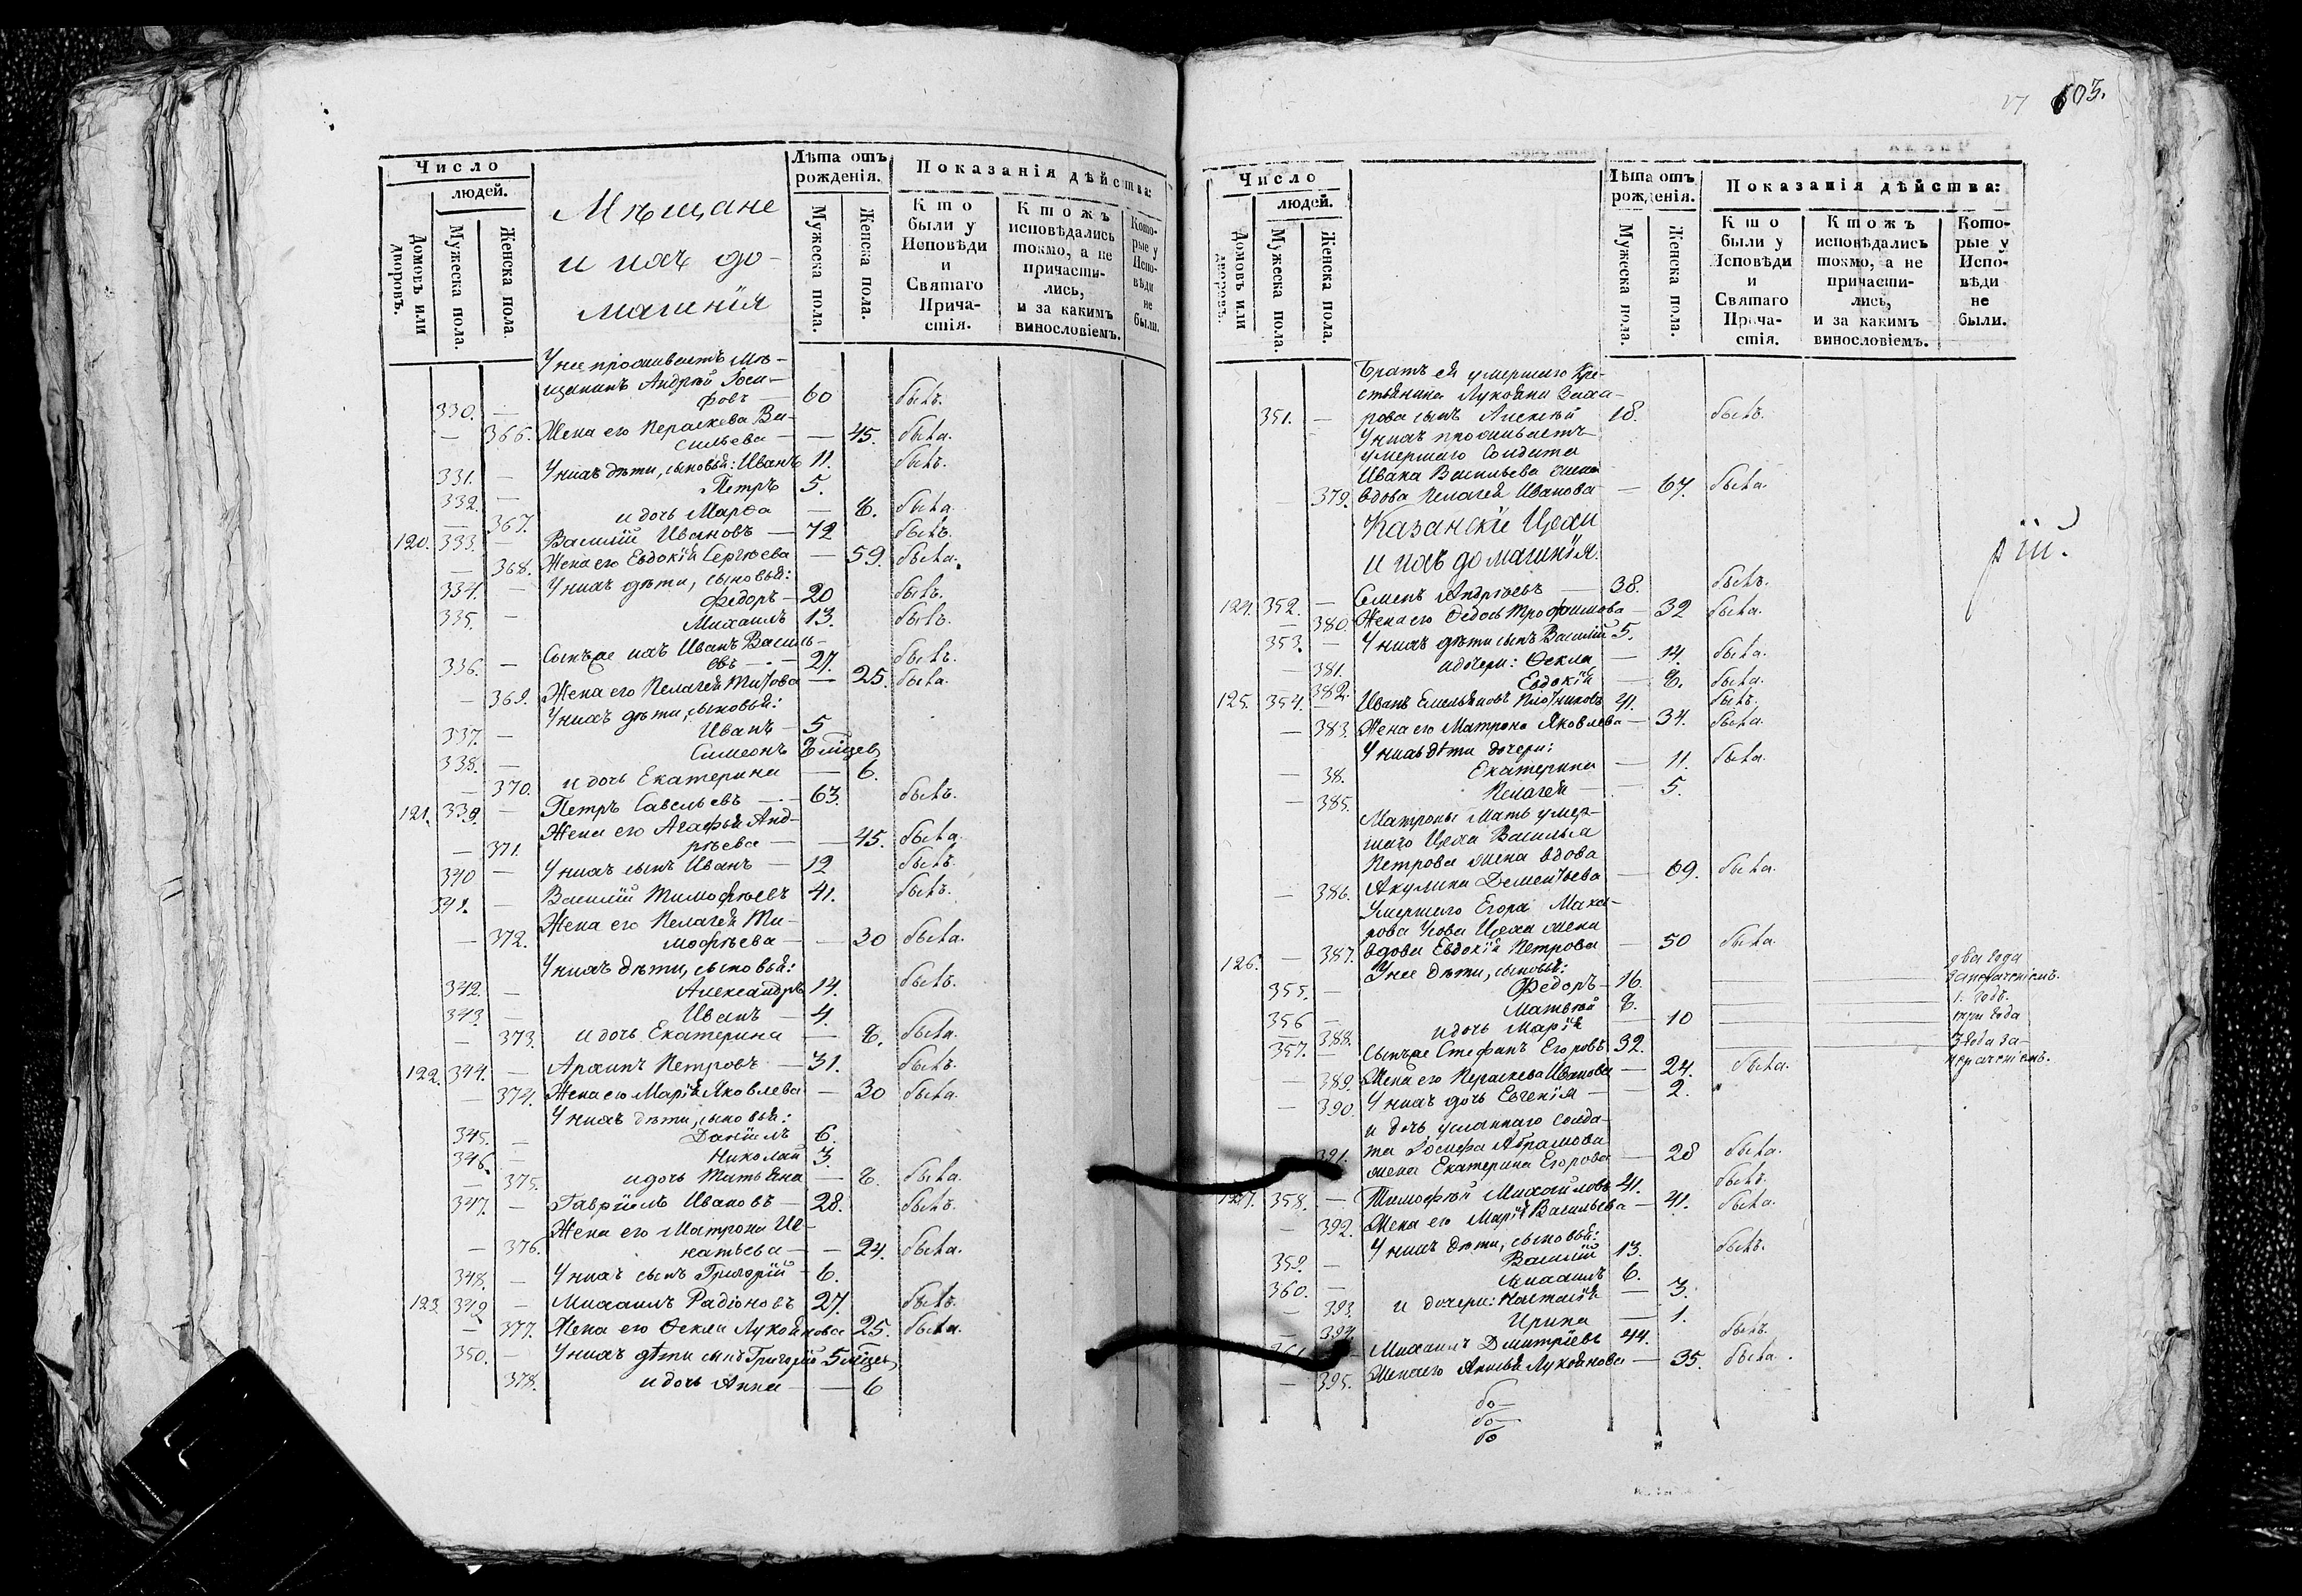 Число
людей.
Домовъ или дворовъ.
Мужеска пола.
Женска пола.
Мѣщане
и ихъ до-
машнія
Лѣта отъ рожденія.
Мужеска пола.
Женска пола.
Показанія дѣйства:
Кто были у Исповѣди и Святаго Прича- стія.
Ктожъ исповѣдались токмо, а не причасти- лись, и за какимъ винословіемъ.
Кото- рые у Испо- вѣди не были.
У нее проживаетъ мѣ-
щанинъ Андрей Іоси-
330. — фовъ — 60 былъ.
— 366. Жена его Пераскева Ва-
сильева — — 45. была.
331. — У нихъ дѣти, сыновья: Иванъ 11. былъ.
332. — Петръ 5.
— 367. и дочь Марѳа — 8. была.
120. 333. — Василій Ивановъ — 72 былъ.
— 368. Жена его Евдокія Сергѣева — 59. была.
У нихъ дѣти, сыновья:
334. — Федоръ — 20 былъ.
335. — Михаилъ 13. былъ.
Сынъ же ихъ Иванъ Василь-
336. — евъ — 27. былъ.
— 369. Жена его Пелагея Титова — 25. была.
У нихъ дѣти, сыновья:
337. — Иванъ — 5
338. — Симеонъ 3 мѣсцев
— 370. и дочь Екатерина — 6.
121. 339. — Петръ Савельевъ — 63. былъ.
Жена его Агафья Анд-
— 371. рѣева — — 45. была.
340 — У нихъ сынъ Иванъ — 12 былъ.
341. — Василій Тимофѣевъ 41. былъ.
Жена его Пелагея Ти-
— 372. мофѣева — — 30 была.
У нихъ дѣти, сыновья:
342. — Александръ 14. былъ.
343. — Иванъ — 4.
— 373. и дочь Екатерина — 8. была.
122. 344. — Архипъ Петровъ — 31. былъ.
— 374. Жена его Марія Яковлева — 30 была.
У нихъ дѣти, сыновья:
345. — Даніилъ 6.
346. — Николай 3.
— 375. и дочь Татьяна — 8. была.
347. — Гавріилъ Ивановъ — 28. былъ.
Жена его Матрона Иг-
— 376. натьева — — 24. была.
348. — У нихъ сынъ Григорій — 6.
123. 349 — Михаилъ Радіоновъ 27. былъ.
— 377. Жена его Ѳекла Лукоянова 25. была.
350. — У нихъ дѣти сынъ Григорій 5 мѣсцев
378. и дочь Анна — — 6
27 603.
Число
людей.
Домовъ или дворовъ.
Мужеска пола.
Женска пола.
Лѣта отъ рожденія.
Мужеска пола.
Женска пола.
Показанія дѣйства:
Кто были у Исповѣди и Святаго Прича- стія.
Ктожъ исповѣдались токмо, а не причасти- лись, и за какимъ винословіемъ.
Кото- рые у Испо- вѣди не были.
Братъ ея умершаго Кре-
стьянина Лукояна Заха-
351. — рова сынъ Алексѣй 18. былъ.
У нихъ проживаетъ
умершаго Солдата
Ивана Васильева жена
— 379. вдова Пелагея Иванова — 67. была.
Казанскіе Цехи
и ихъ домашнія.
124. 352. — Семенъ Андрѣевъ — 38. былъ.
— 380. Жена его Ѳедосья Трофимова — 32 была.
353. — У нихъ дѣти сынъ Василій 5.
— 381. и дочери: Ѳекла — 14. была.
382. Евдокія — 8. была.
125. 354. — Иванъ Емельяновъ Плотниковъ 41. былъ.
— 383. Жена его Матрона Яковлева — 34. была.
У нихъ дѣти дочери:
— 38. Екатерина — 11. была.
— 385. Пелагея — 5.
Матроны Мать умер-
шаго Цеха Василья
Петрова жена вдова
— 386. Акулина Дементьева — 69. была.
Умершаго Егора Мака-
рова Усова Цеха жена
126. — 387. вдова Евдокія Петрова — 50 была.
У нее дѣти, сыновья: два года
355. — Федоръ — 16.
356 — Матвѣй 8. 1. годъ.
— 388. и дочь Марія — 10 три года
357. — Сынъ же Стефанъ Егоровъ 32. 3 года за-
— 389. Жена его Пераскева Иванова — 24. была.
— 390. У нихъ дочь Евгенія — 2.
и дочь усланнаго Солда-
та Іосифа Абрамова
391. жена Екатерина Егорова — 28 была.
127. 358. — Тимофѣй Михайловъ 41. былъ.
— 392. Жена его Марія Васильева — 41. была.
У нихъ дѣти, сыновья:
359. — Василій 13. былъ.
360. — Михаилъ 6.
— 393. и дочери: Настасія — 3.
— 394. Ирина — 1.
Михаилъ Дмитріевъ 44. былъ.
— 395. Жена его Анисья Лукоянова — 35. была.
бо—
бо—
бо